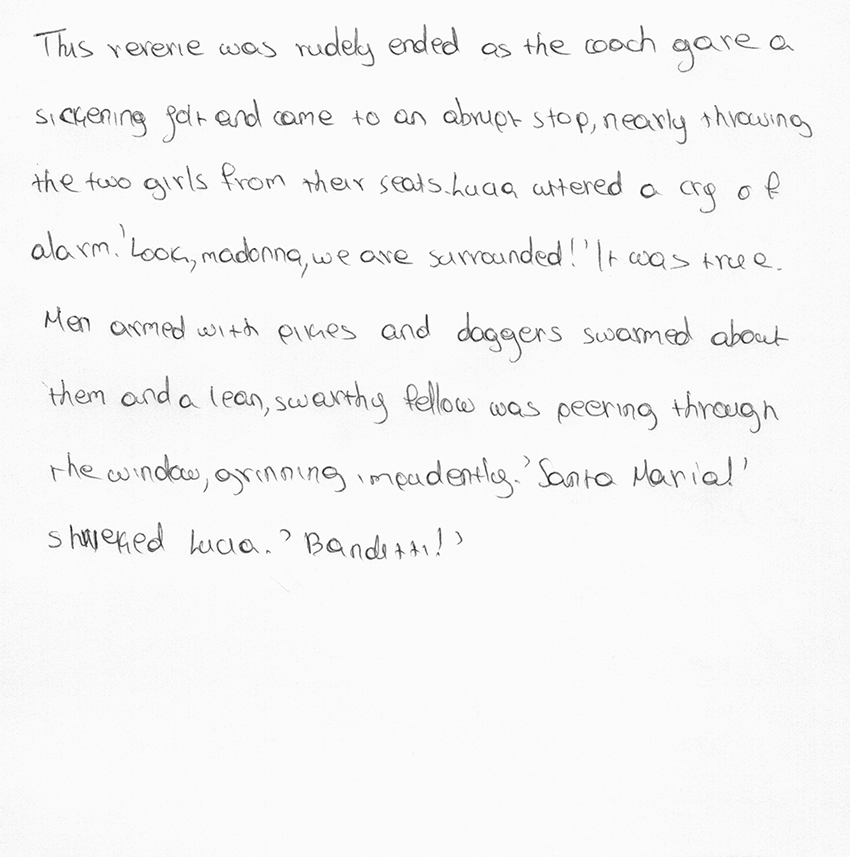 This reverie was rudely ended as the coach gave a
sickening jolt and came to an abrupt stop, nearly throwing
the two girls from their seats. Lucia uttered a cry of
alarm. 'Look, madonna, we are surrounded!' It was true.
Men armed with pikes and daggers swarmed about
them and a lean, swarthy fellow was peering through
the window, grinning impudently. 'Santa Maria!'
shrieked Lucia. 'Banditti!'